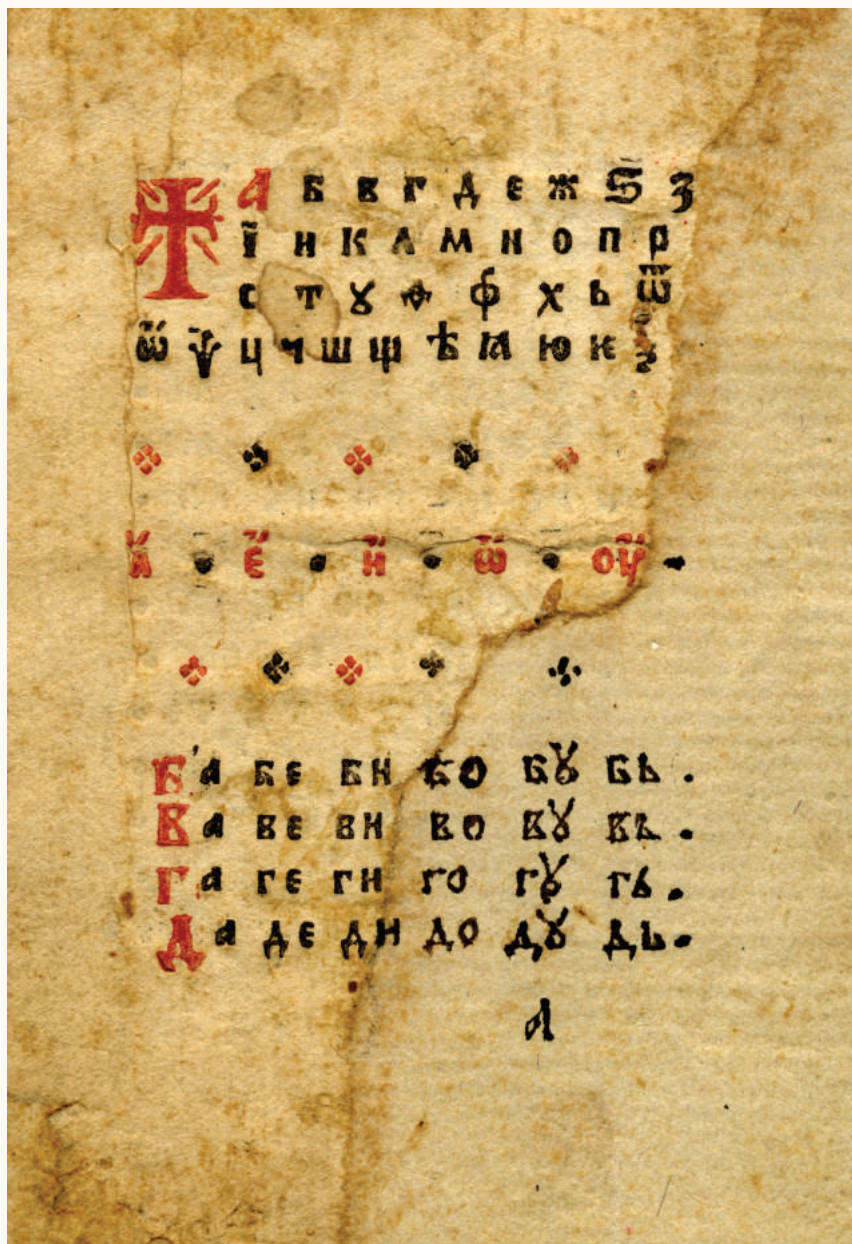 а б в г д е ж ѕ з
ї и к л м н о п р
с т ꙋ ѳ ф х ь ѿ
ѿ ѱ ц ч ш щ ѣ ꙗ ю ѥ ѯ
а҆̀ · є҆̀ · и҆̀ · ѡ҆̀ · оу҆̀ ·
Ба бе би бо бꙋ бь .
Ва ве ви во вꙋ вь .
Га ге ги го гꙋ гь .
Да де ди до дꙋ дь .
А